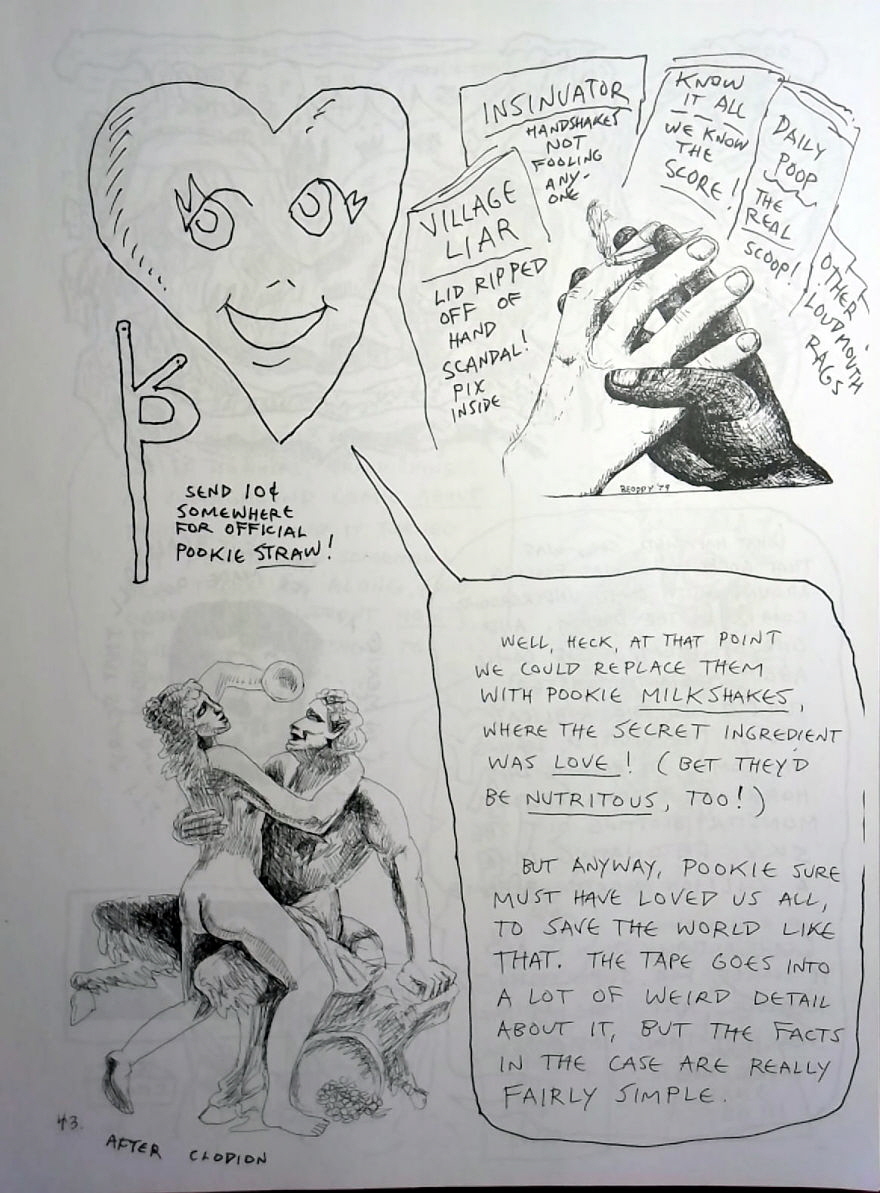 INSINUATOR
HANDSHAKES
NOT
FOOLING
ANY-
ONE
KNOW
IT ALL
WE KNOW
THE
SCORE!
DAILY
POOP
THE
REAL
SCOOP!
OTHER
LOUDMOUTH
RAGS
VILLAGE
LIAR
LID RIPPED
OFF OF
HAND
SCANDAL!
PIX
INSIDE
SEND 10¢
SOMEWHERE
FOR OFFICIAL
POOKIE STRAW!
WELL, HECK, AT THAT POINT
WE COULD REPLACE THEM
WITH POOKIE MILKSHAKES,
WHERE THE SECRET INGREDIENT
WAS LOVE! (BET THEY'D
BE NUTRITOUS, TOO!)
BUT ANYWAY, POOKIE SURE
MUST HAVE LOVED US ALL,
TO SAVE THE WORLD LIKE
THAT. THE TAPE GOES INTO
A LOT OF WEIRD DETAIL
ABOUT IT, BUT THE FACTS
IN THE CASE ARE REALLY
FAIRLY SIMPLE.
43.
AFTER CLODION